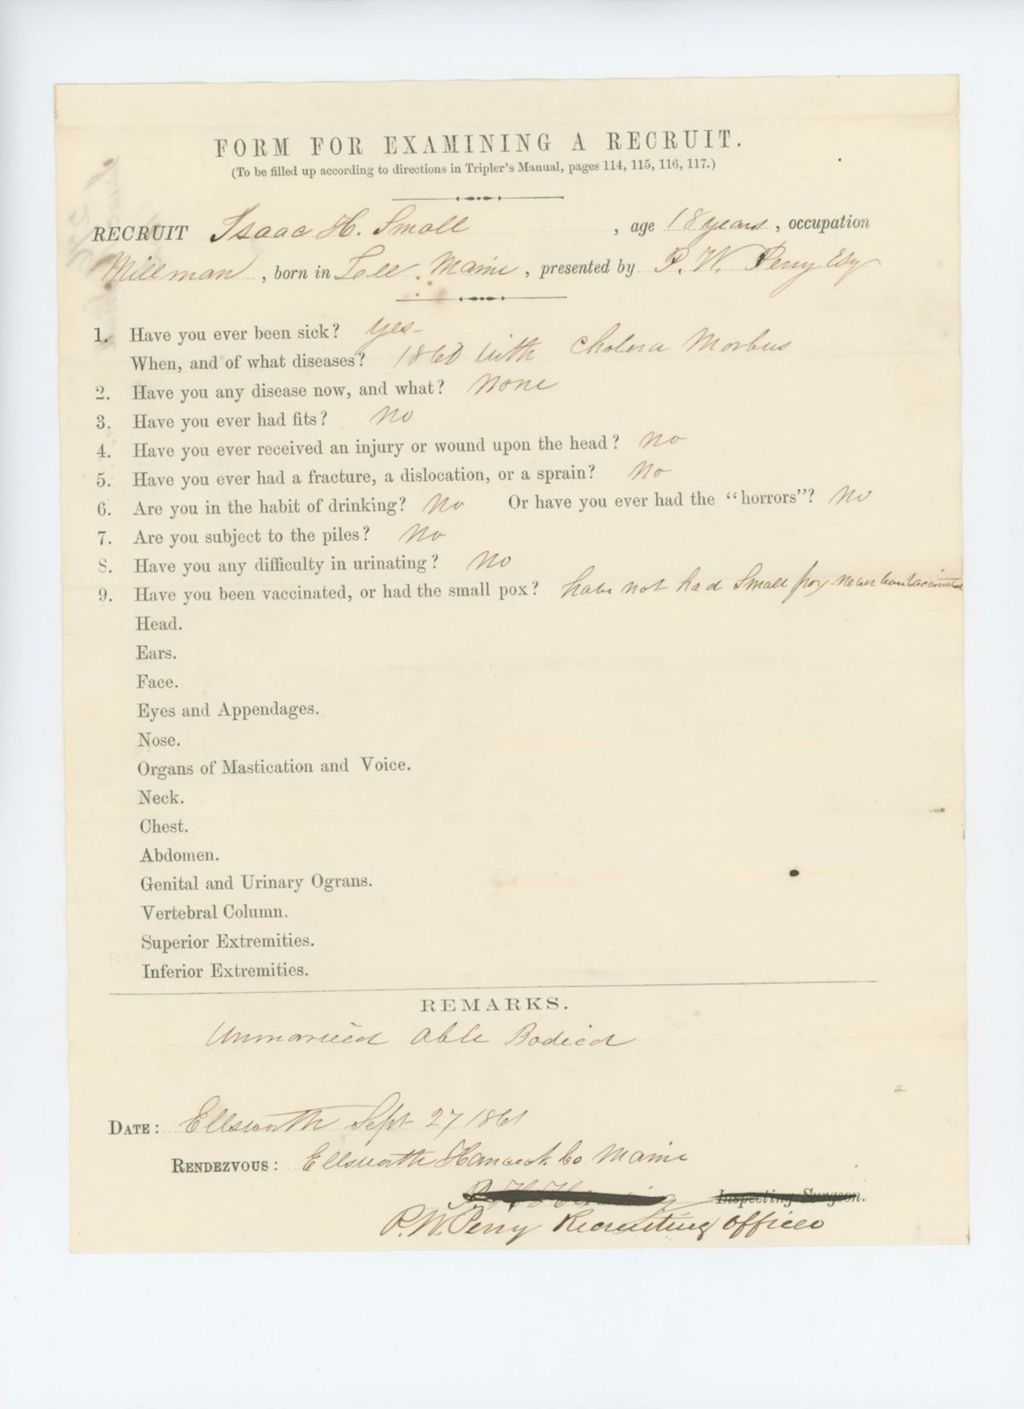 FORM FOR EXAMINING A RECRUIT.
(To be filled up according to directions in Tripler's Manual, pages 114, 115, 116, 117.)
RECRUIT Isaac H. Small , age 18 years , occupation
Millman , born in Lee Maine , presented by P. W. Perry Esq
1. Have you ever been sick? yes
When, and of what diseases? 1860 with Cholera Morbus
2. Have you any disease now, and what? None
3. Have you ever had fits? No
4. Have you ever received an injury or wound upon the head? No
5. Have you ever had a fracture, a dislocation, or a sprain? No
6. Are you in the habit of drinking? No Or have you ever had the "horrors"? No
7. Are you subject to the piles? No
8. Have you any difficulty in urinating? No
9. Have you been vaccinated, or had the small pox? have not had Small pox never been vaccinated
Head.
Ears.
Face.
Eyes and Appendages.
Nose.
Organs of Mastication and Voice.
Neck.
Chest.
Abdomen.
Genital and Urinary Ograns.
Vertebral Column.
Superior Extremities.
Inferior Extremities.
REMARKS.
Unmarried Able Bodied
DATE: Ellsworth Sept 27 1861
RENDEZVOUS: Ellsworth Hancock Co Maine
Inspecting Surgeon.
P. W. Perry Recruiting Officer